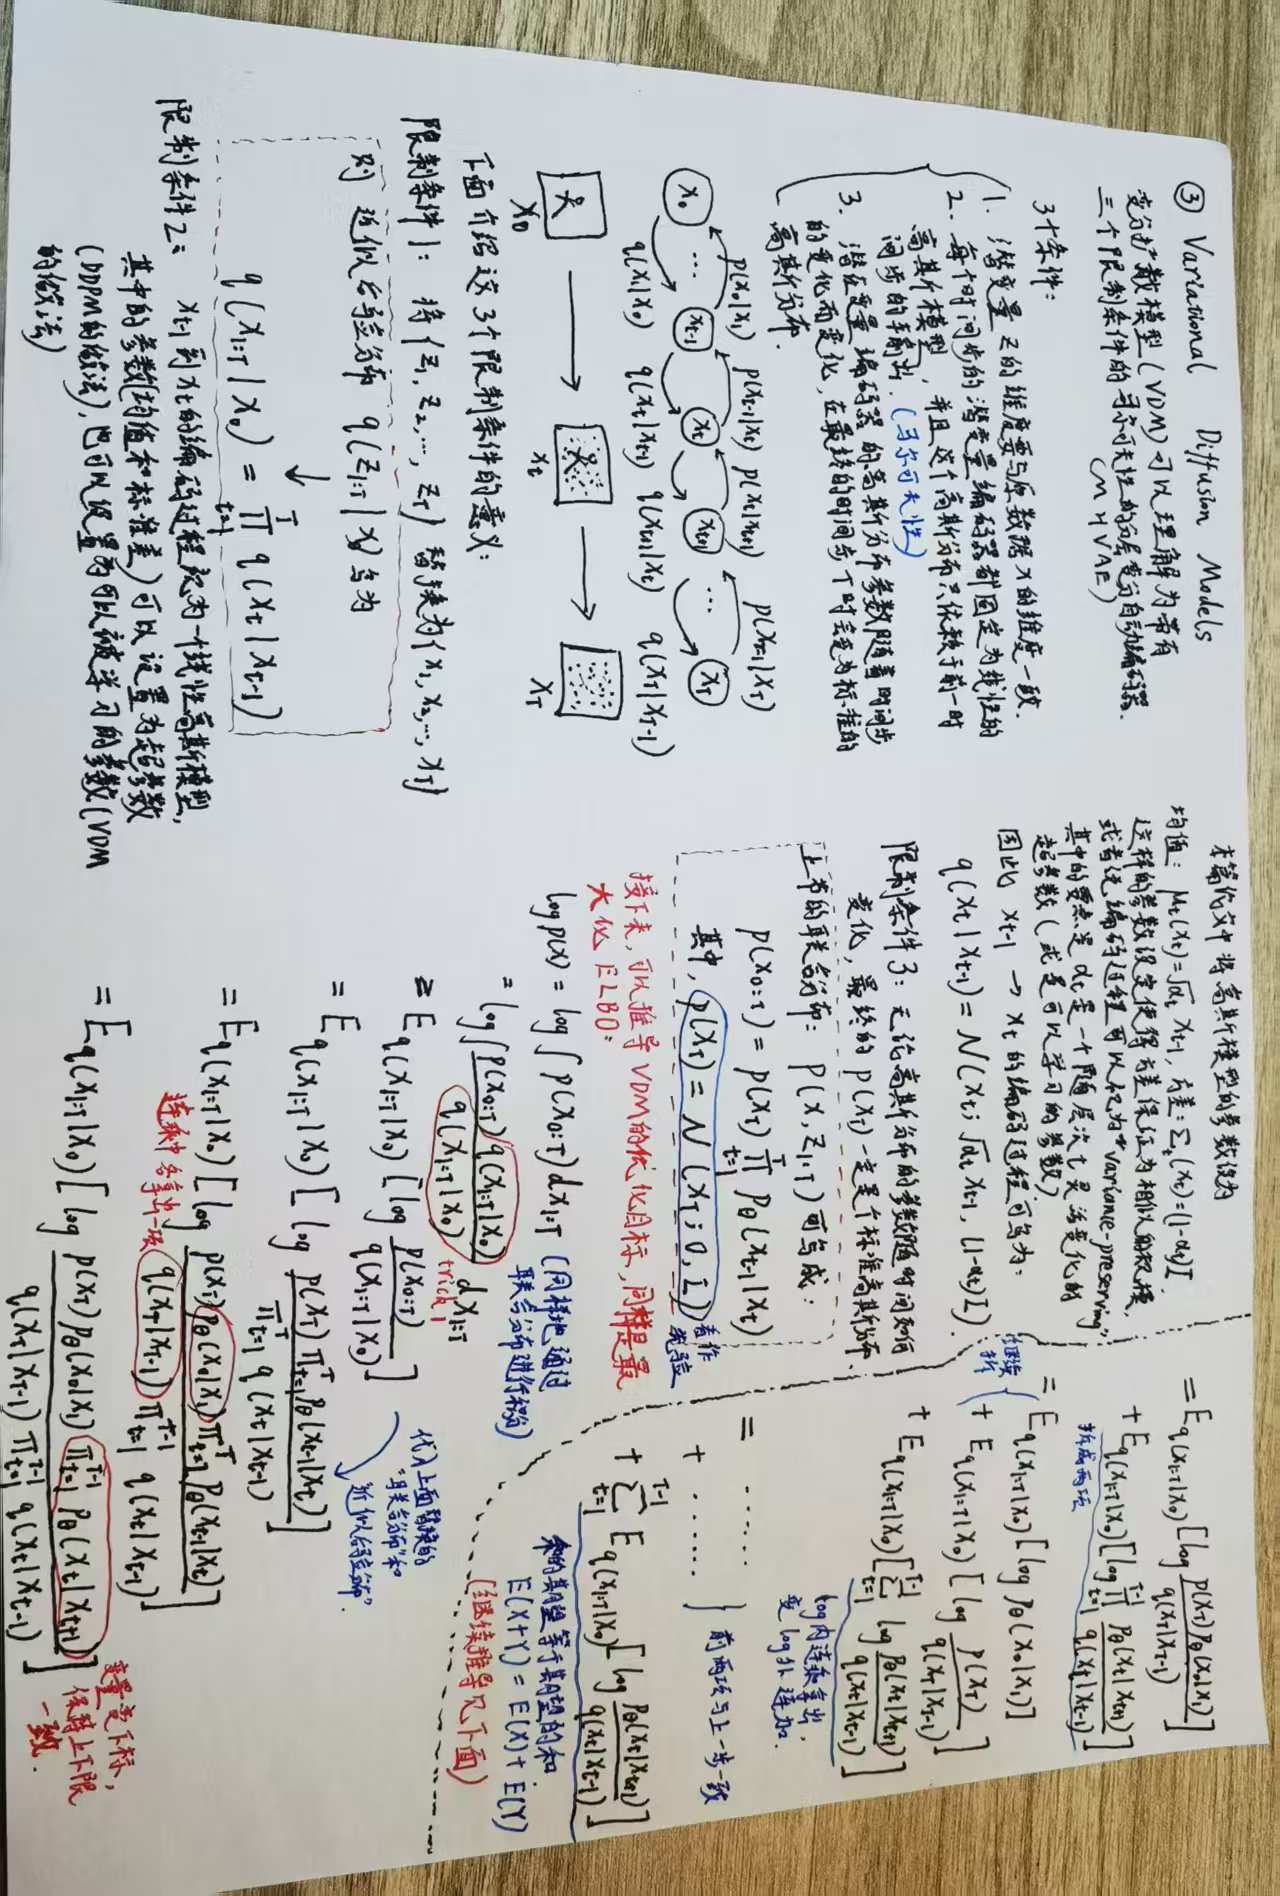 ③ Variational Diffusion Models
变分扩散模型(VDM)可以理解为带有
三个限制条件的马尔可夫性的分层变分自动编码器.
(MHVAE)
3个条件:
1. 潜变量 Z 的维度要与原数据 X 的维度一致.
2. 每个时间步的潜变量编码器都固定为线性的
高斯模型, 并且这个高斯分布只依赖于前一时
间步的输出.(马尔可夫性)
3. 潜在变量编码器的高斯分布参数随着时间步
的变化而变化, 在最终的时间步T时会变为标准的
高斯分布.
p(x₀|x₁) p(xₜ₋₁|xₜ) p(xₜ|xₜ₊₁) p(x_{T-1}|x_T)
x₀ ... xₜ₋₁ xₜ xₜ₊₁ ... x_T
q(x₁|x₀) q(xₜ|xₜ₋₁) q(xₜ₊₁|xₜ) q(x_T|x_{T-1})
x₀ xₜ x_T
下面介绍这3个限制条件的意义:
限制条件1: 将{z₁, z₂, ..., z_T} 替换为{x₁, x₂, ..., x_T}
则 近似后验分布 q(z_{1:T}|x)写为
↓
q(x_{1:T}|x₀) = ∏_{t=1}^{T} q(xₜ|xₜ₋₁)
限制条件2: xₜ₋₁到xₜ的编码过程视为一个线性高斯模型,
其中的参数(均值和标准差)可以设置为超参数
(DDPM的做法), 也可以设置为可以被学习的参数(VDM
的做法)
本篇论文中将高斯模型的参数设为
均值: μₜ(xₜ)=√αₜ xₜ₋₁, 方差: Σₜ(xₜ)=(1-αₜ)I.
这样的参数设定使得方差保证为相似的规模,
或者说编码过程可以视为"variance-preserving"
其中的要点是 αₜ是一个随层次t灵活变化的
超参数(或是可以学习的参数)
因此 xₜ₋₁ → xₜ 的编码过程可写为:
q(xₜ|xₜ₋₁) = N(xₜ; √αₜ xₜ₋₁, (1-αₜ)I).
限制条件3: 无论高斯分布的参数随时间如何
变化, 最终的p(x_T)一定是个标准高斯分布.
上节的联合分布: p(x, z_{1:T})可写成:
p(x_{0:T}) = p(x_T) ∏_{t=1}^{T} p_θ(xₜ₋₁|xₜ)
其中, p(x_T) = N(x_T; 0, I) 看作
先验
接下来, 可以推导VDM的优化目标, 同样是最
大化 ELBO:
log p(x) = log ∫ p(x_{0:T}) dx_{1:T} (同样地通过
联合分布进行积分)
= log ∫ p(x_{0:T}) q(x_{1:T}|x₀) / q(x_{1:T}|x₀) dx_{1:T}
trick!
≥ E_{q(x_{1:T}|x₀)} [log p(x_{0:T}) / q(x_{1:T}|x₀)]
代入上面替换的
"联合分布"和
"近似后验分布".
= E_{q(x_{1:T}|x₀)} [log p(x_T) ∏_{t=1}^{T} p_θ(xₜ₋₁|xₜ) / ∏_{t=1}^{T} q(xₜ|xₜ₋₁)]
= E_{q(x_{1:T}|x₀)} [log p(x_T) p_θ(x₀|x₁) ∏_{t=2}^{T} p_θ(xₜ₋₁|xₜ) / q(x_T|x_{T-1}) ∏_{t=1}^{T-1} q(xₜ|xₜ₋₁)]
连乘中各拿出一项
= E_{q(x_{1:T}|x₀)} [log p(x_T) p_θ(x₀|x₁) ∏_{t=1}^{T-1} p_θ(xₜ|xₜ₊₁) / q(x_T|x_{T-1}) ∏_{t=1}^{T-1} q(xₜ|xₜ₋₁)]
变量变下标,
保持上下限
一致.
= E_{q(x_{1:T}|x₀)} [log p(x_T) p_θ(x₀|x₁) / q(x_T|x_{T-1})]
+ E_{q(x_{1:T}|x₀)} [log ∏_{t=1}^{T-1} p_θ(xₜ|xₜ₊₁) / q(xₜ|xₜ₋₁)]
拆成两项
= E_{q(x_{1:T}|x₀)} [log p_θ(x₀|x₁)]
继续
拆
+ E_{q(x_{1:T}|x₀)} [log p(x_T) / q(x_T|x_{T-1})]
+ E_{q(x_{1:T}|x₀)} [∑_{t=1}^{T-1} log p_θ(xₜ|xₜ₊₁) / q(xₜ|xₜ₋₁)]
log内连乘拿出,
变log外连加.
= ......
+ ...... } 前两项与上一步一致
+ ∑_{t=1}^{T-1} E_{q(x_{1:T}|x₀)} [log p_θ(xₜ|xₜ₊₁) / q(xₜ|xₜ₋₁)]
和的期望等于期望的和
E(X+Y) = E(X) + E(Y)
(继续推导见下面)